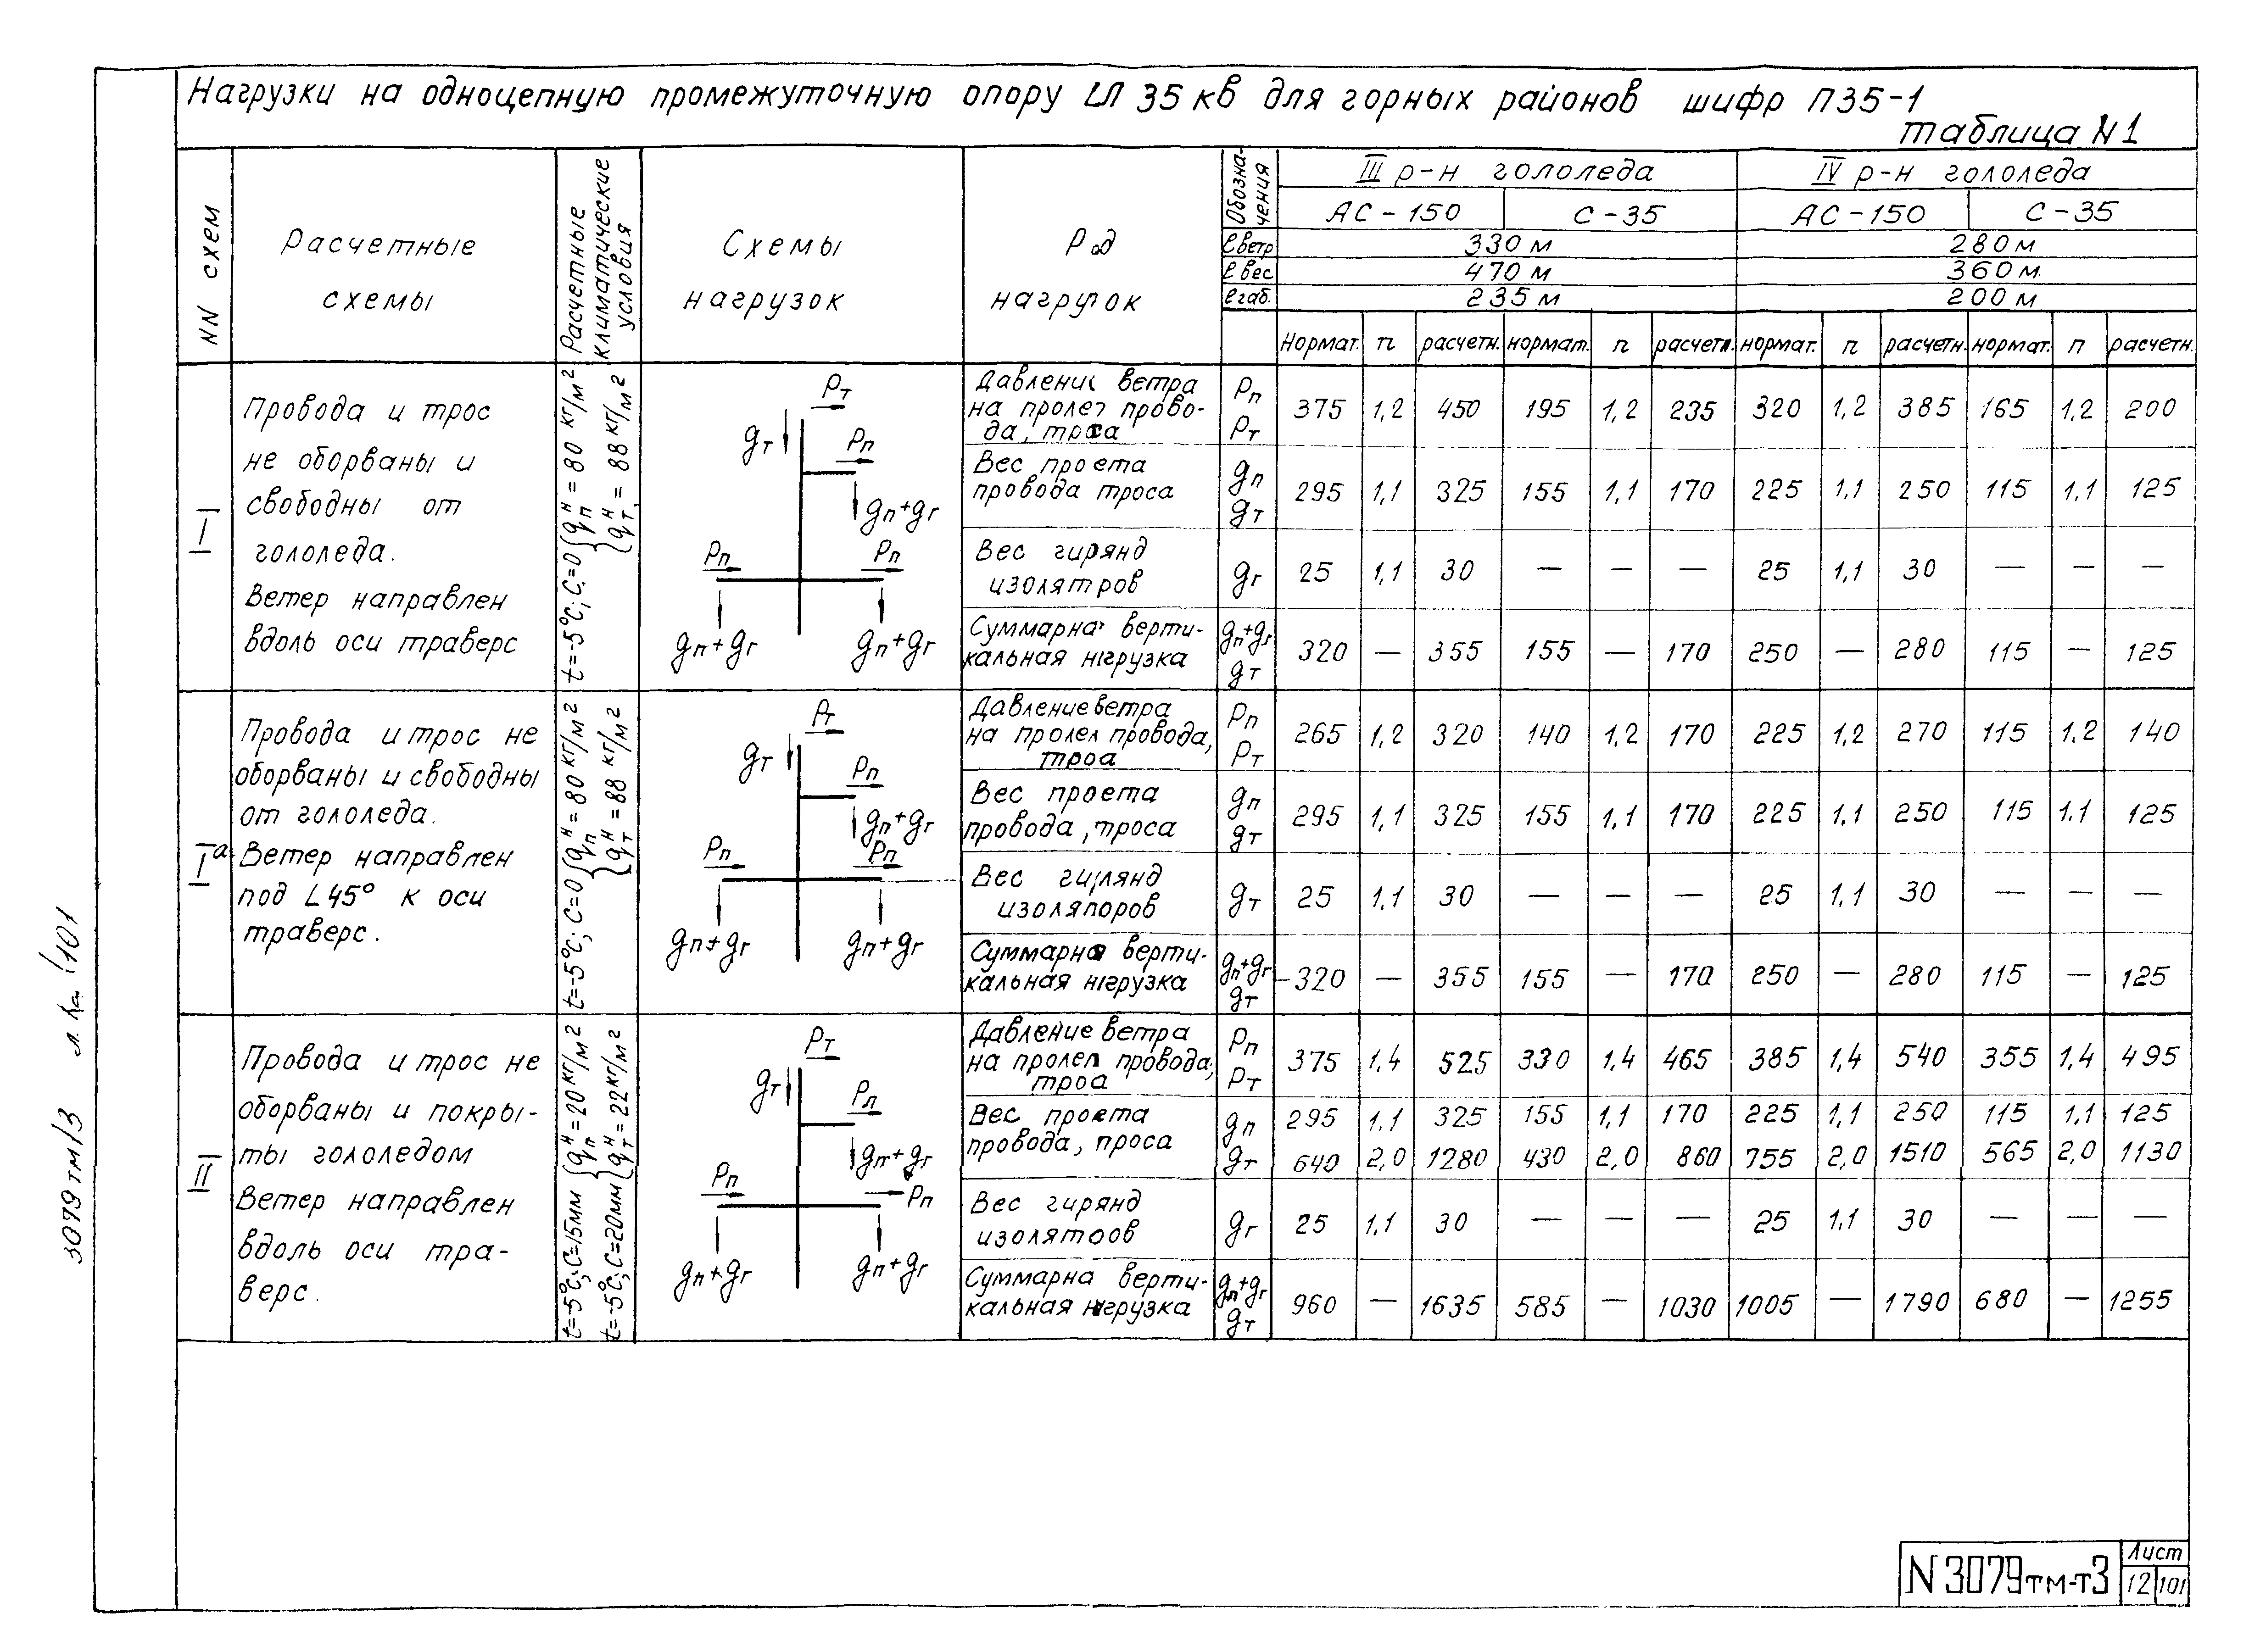 Нагрузки на одноцепную промежуточную опору ВЛ 35 кв для горных районов шифр П35-1
таблица N 1
NN схем
Расчетные
схемы
Расчетные
климатические
условия
Схемы
нагрузок
Род
нагрузок
Обозна-
чения
III р-н гололеда
IV р-н гололеда
АС-150 С-35 АС-150 С-35
ℓветр 330 м 280 м
ℓвес 470 м 360 м.
ℓгаб. 235 м 200 м
Нормат. n расчетн. нормат. n расчетн. нормат. n расчетн. нормат. n расчетн.
I
Провода и трос
не оборваны и
свободны от
гололеда.
Ветер направлен
вдоль оси траверс
t=-5°C; C=0 {qнп = 80 кг/м²
{qнт = 88 кг/м²
Pт
gт
Pп
gп+gг
Pп Pп
gп+gг gп+gг
Давление ветра
на пролет прово-
да, троса
Pп
Pт
375 1,2 450 195 1,2 235 320 1,2 385 165 1,2 200
Вес проета
провода троса
gп
gт
295 1,1 325 155 1,1 170 225 1,1 250 115 1,1 125
Вес гирянд
изолятров
gг
25 1,1 30 — — — 25 1,1 30 — — —
Суммарна верти-
кальная нагрузка
gп+gг
gт
320 — 355 155 — 170 250 — 280 115 — 125
Iа
Провода и трос не
оборваны и свободны
от гололеда.
Ветер направлен
под L 45° к оси
траверс.
t=-5°C; C=0 {qнп = 80 кг/м²
{qнт = 88 кг/м²
Pт
gт
Pп
gп+gг
Pп Pп
gп+gг gп+gг
Давление ветра
на пролет провода,
троа
Pп
Pт
265 1,2 320 140 1,2 170 225 1,2 270 115 1,2 140
Вес проета
провода, троса
gп
gт
295 1,1 325 155 1,1 170 225 1,1 250 115 1,1 125
Вес гирлянд
изоляпоров
gт
25 1,1 30 — — — 25 1,1 30 — — —
Суммарная верти-
кальная нагрузка
gп+gг
gт
320 — 355 155 — 170 250 — 280 115 — 125
II
Провода и трос не
оборваны и покры-
ты гололедом
Ветер направлен
вдоль оси тра-
верс.
t=-5°C; C=15мм {qнп = 20 кг/м²
t=-5°C; C=20мм {qнт = 22 кг/м²
Pт
gт
Pп
gп+gг
Pп Pп
gп+gг gп+gг
Давление ветра
на пролет провода,
троа
Pп
Pт
375 1,4 525 330 1,4 465 385 1,4 540 355 1,4 495
Вес проета
провода, проса
gп
gт
295 1,1 325 155 1,1 170 225 1,1 250 115 1,1 125
640 2,0 1280 430 2,0 860 755 2,0 1510 565 2,0 1130
Вес гирянд
изолятоов
gг
25 1,1 30 — — — 25 1,1 30 — — —
Суммарна верти-
кальная нагрузка
gп+gг
gт
960 — 1635 585 — 1030 1005 — 1790 680 — 1255
3079 тм/3
101
N 3079тм-т3
Лист
12 101